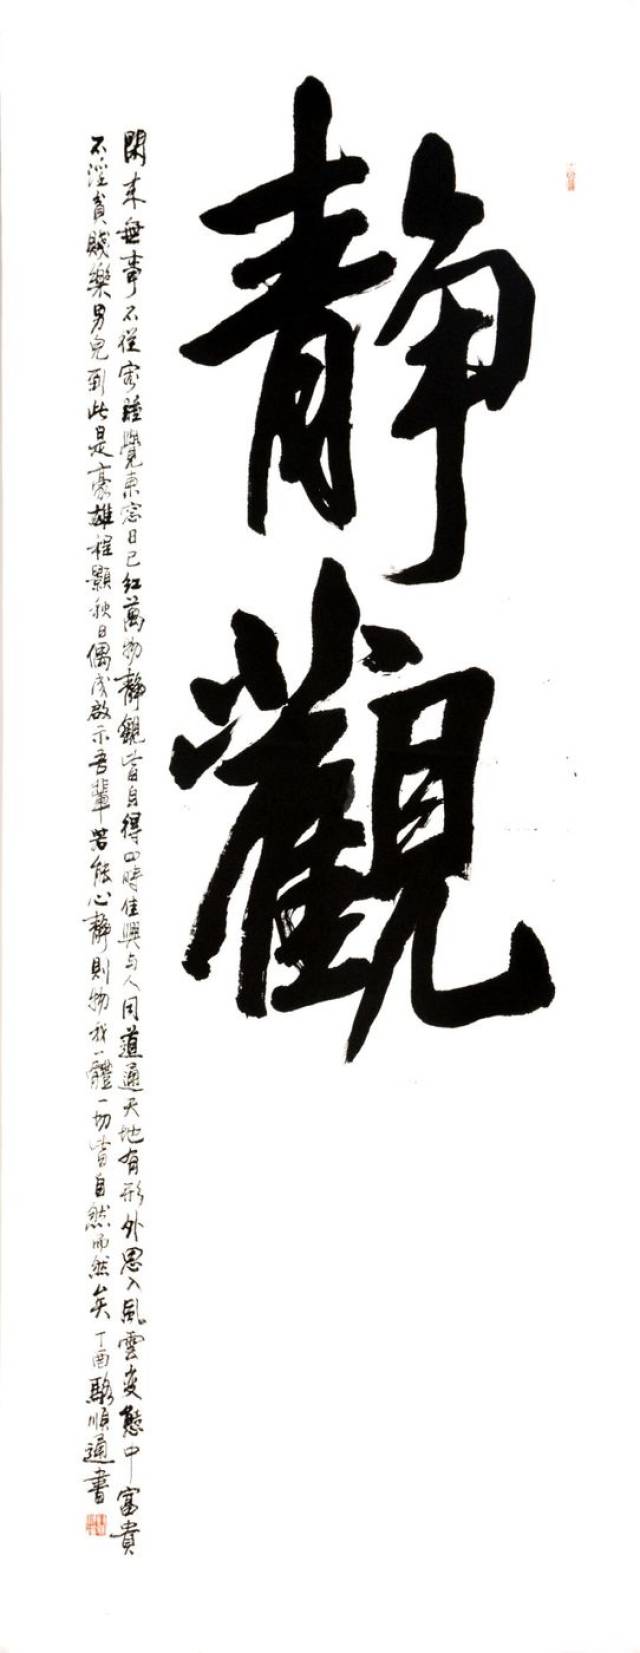 靜觀
閑來無事不從容睡覺東窓日已紅萬物靜觀皆自得四時佳興与人同道通天地有形外思入風雲变態中富貴
不淫貧賤樂男兒到此是豪雄程顥秋日偶成啟示吾輩若能心靜則物我一體一切皆自然而然矣丁酉駱順通書